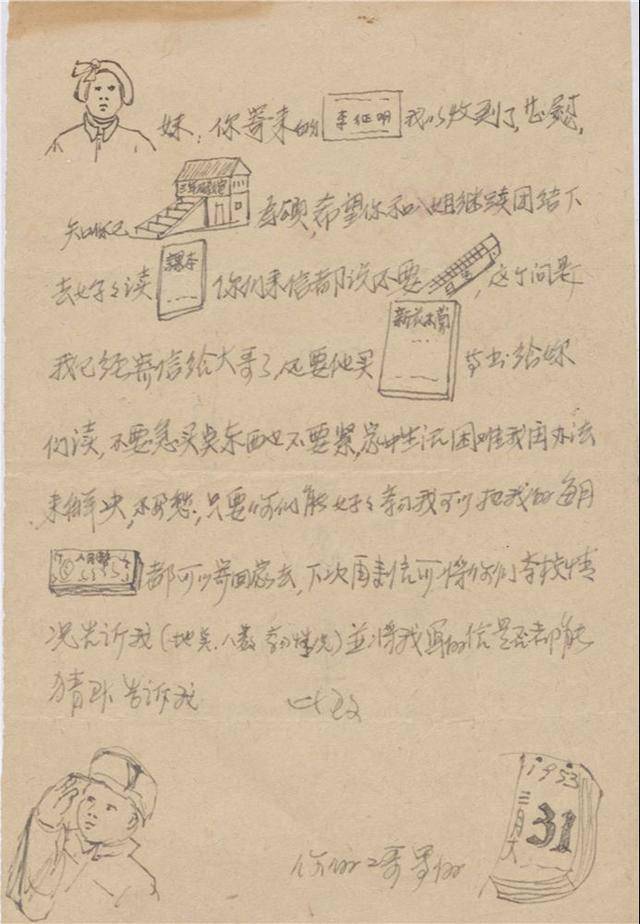 妹：你寄来的 李征明 我以收到了，甚慰，
知你已 三年级 考硕，希望你和八姐继续团结下
去好好读 课本 你们来信都说不要 ，这个问题
我已经寄信给大哥了，还要他买 新衣不 等书给你
们读，不要急买点东西也不要紧，家中生活困难我用办法
来解决，不必愁，只要你们能好好学习我可以把我的每月
人民幣 都可以寄回家去，下次再来信可将你们学校情
况告诉我（地点、人数 学习情况）並将我写的信是否都能
猜到告诉我 此致
1953
三月大
31
你的二哥